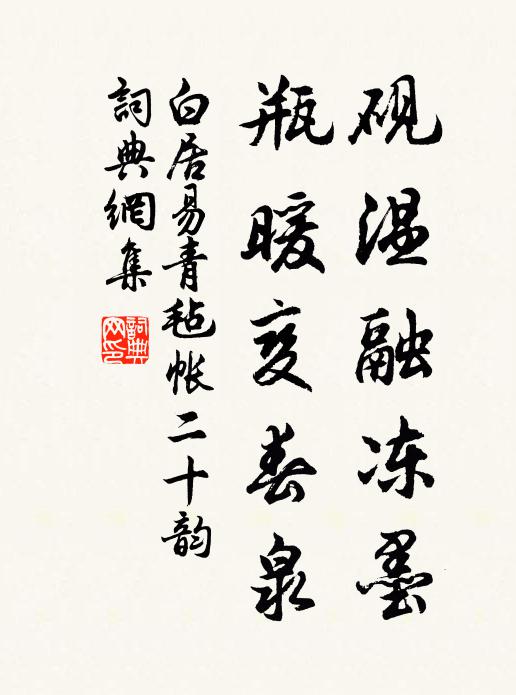 砚温融冻墨
瓶暖变春泉
白居易青毡帐二十韵
詞典網集
詞典網印